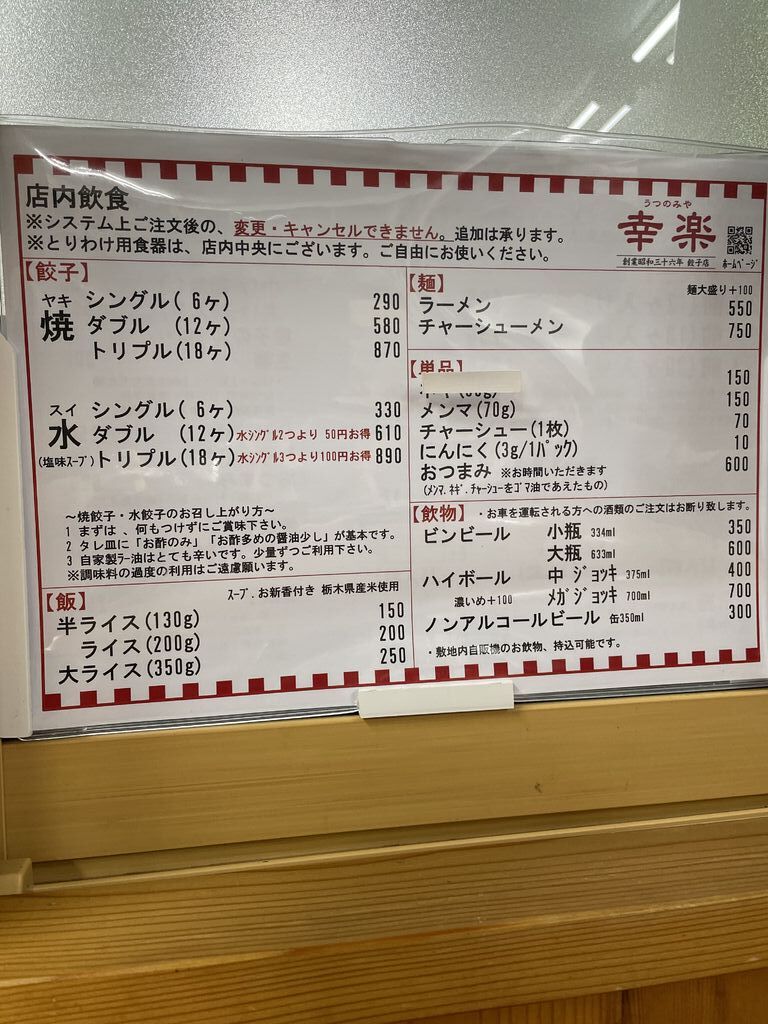 店内飲食
※システム上ご注文後の、変更・キャンセルできません。追加は承ります。
※とりわけ用食器は、店内中央にございます。ご自由にお使いください。
うつのみや
幸楽
創業昭和三十六年 餃子店
ﾎｰﾑﾍﾟｰｼﾞ
【餃子】
ヤキ
焼
シングル( 6ヶ) 290
ダブル (12ヶ) 580
トリプル(18ヶ) 870
スイ
水
(塩味スープ)
シングル( 6ヶ) 330
ダブル (12ヶ) 水ｼﾝｸﾞﾙ2つより 50円お得 610
トリプル(18ヶ) 水ｼﾝｸﾞﾙ3つより100円お得 890
～焼餃子・水餃子のお召し上がり方～
1 まずは 、何もつけずにご賞味下さい。
2 タレ皿に「お酢のみ」「お酢多めの醤油少し」が基本です。
3 自家製ラー油はとても辛いです。少量ずつご利用下さい。
※調味料の過度の利用はご遠慮願います。
【飯】 ｽｰﾌﾟ､お新香付き 栃木県産米使用
半ライス(130g) 150
ライス(200g) 200
大ライス(350g) 250
【麺】 麺大盛り+100
ラーメン 550
チャーシューメン 750
【単品】
150
メンマ(70g) 150
チャーシュー(1枚) 70
にんにく(3g/1ﾊﾟｯｸ) 10
おつまみ ※お時間いただきます 600
(ﾒﾝﾏ､ﾈｷﾞ､ﾁｬｰｼｭｰをゴマ油であえたもの)
【飲物】 ・お車を運転される方への酒類のご注文はお断り致します。
ビンビール 小瓶 334ml 350
大瓶 633ml 600
ハイボール 中 ｼﾞｮｯｷ 375ml 400
濃いめ+100 ﾒｶﾞｼﾞｮｯｷ 700ml 700
ノンアルコールビール 缶350ml 300
・敷地内自販機のお飲物、持込可能です。